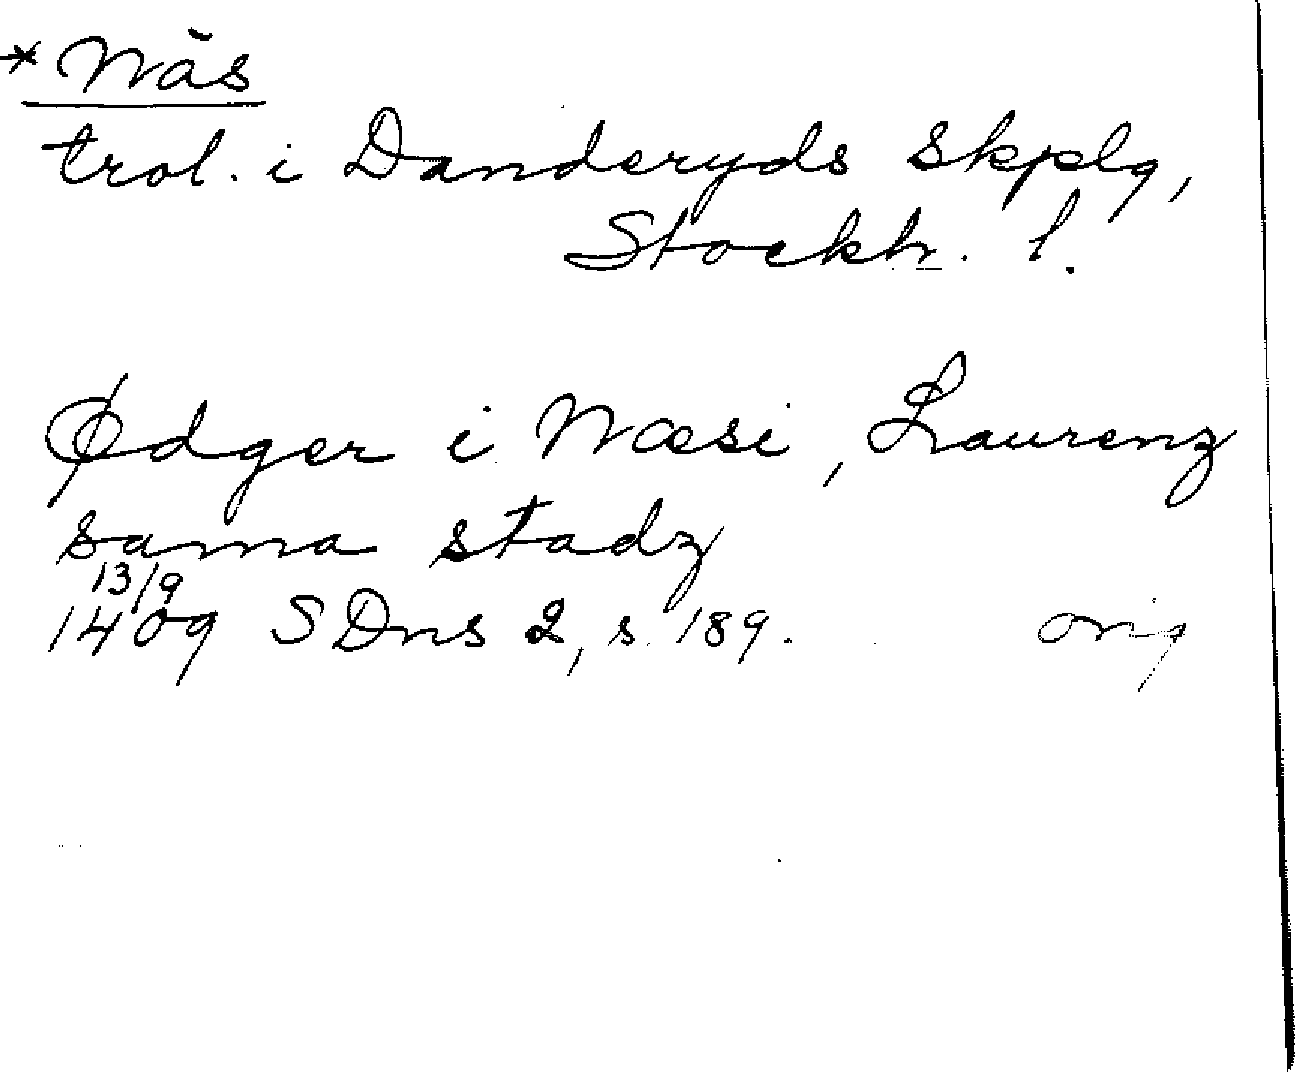 * Näs
trol. i Danderyds skplg,
Stockh. l.
Ødger i Næsi, Laurenz
sama stadz
13/9
1409 SDns 2, s. 189. orig